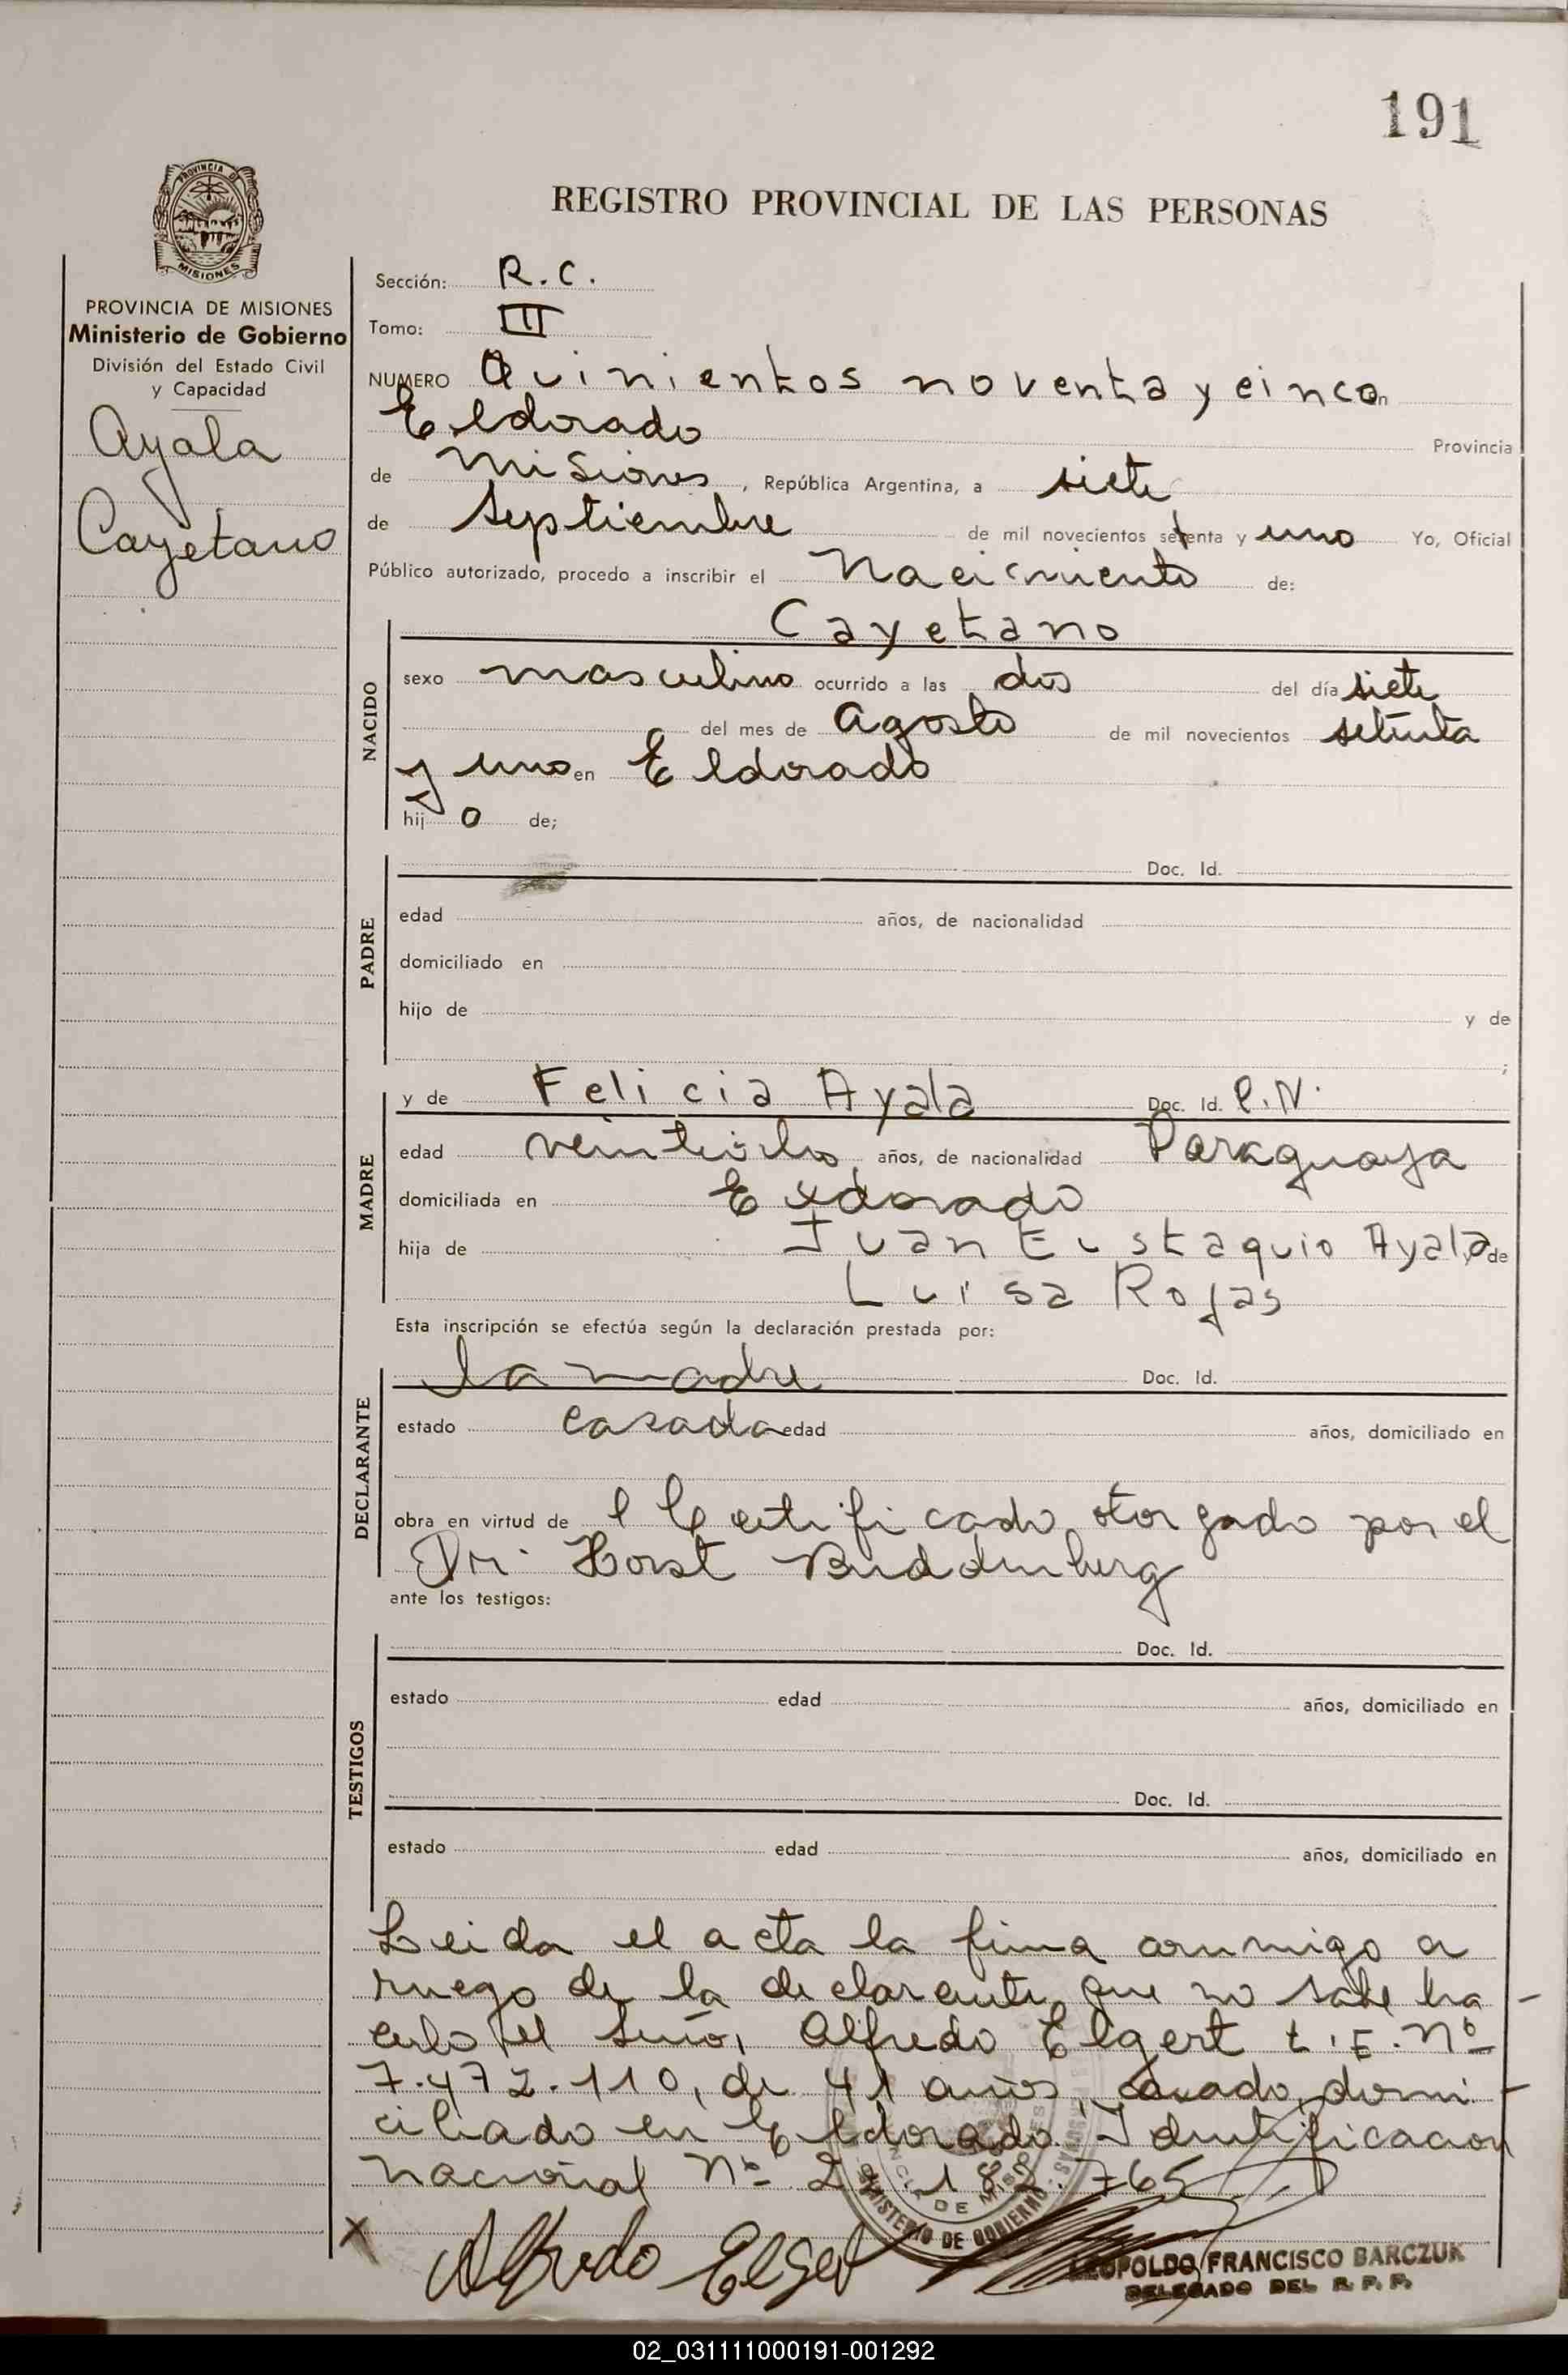 191
PROVINCIA DE
MISIONES
REGISTRO PROVINCIAL DE LAS PERSONAS
PROVINCIA DE MISIONES
Ministerio de Gobierno
División del Estado Civil
y Capacidad
Ayala
Cayetano
Sección: R.C.
Tomo: III
NUMERO Quinientos noventa y cinco en
Eldorado Provincia
de Misiones, República Argentina, a siete
de Septiembre de mil novecientos setenta y uno Yo, Oficial
Público autorizado, procedo a inscribir el Nacimiento de:
Cayetano
NACIDO
sexo masculino ocurrido a las dos del día siete
del mes de Agosto de mil novecientos setenta
y uno en Eldorado
hijo de;
PADRE
Doc. Id.
edad años, de nacionalidad
domiciliado en
hijo de y de
;
MADRE
y de Felicia Ayala Doc. Id. P.N.
edad veintiocho años, de nacionalidad Paraguaya
domiciliada en Eldorado
hija de Juan Eustaquio Ayala y de
Luisa Rojas
Esta inscripción se efectúa según la declaración prestada por:
DECLARANTE
la madre Doc. Id.
estado casada edad años, domiciliado en
obra en virtud de l Certificado otorgado por el
Dr. Horst Buddenberg
ante los testigos:
TESTIGOS
Doc. Id.
estado edad años, domiciliado en
Doc. Id.
estado edad años, domiciliado en
Leida el acta la firma conmigo a
ruego de la declarante que no sabe ha-
cerlo el Señor Alfredo Elgert L.E. Nº
7.472.110, de 41 años, casado, domi-
ciliado en Eldorado. Identificacion
nacional Nº 22.182.765
MINISTERIO DE GOBIERNO
Alfredo Elgert
LEOPOLDO FRANCISCO BARCZUK
DELEGADO DEL R. P. P.
02_031111000191-001292